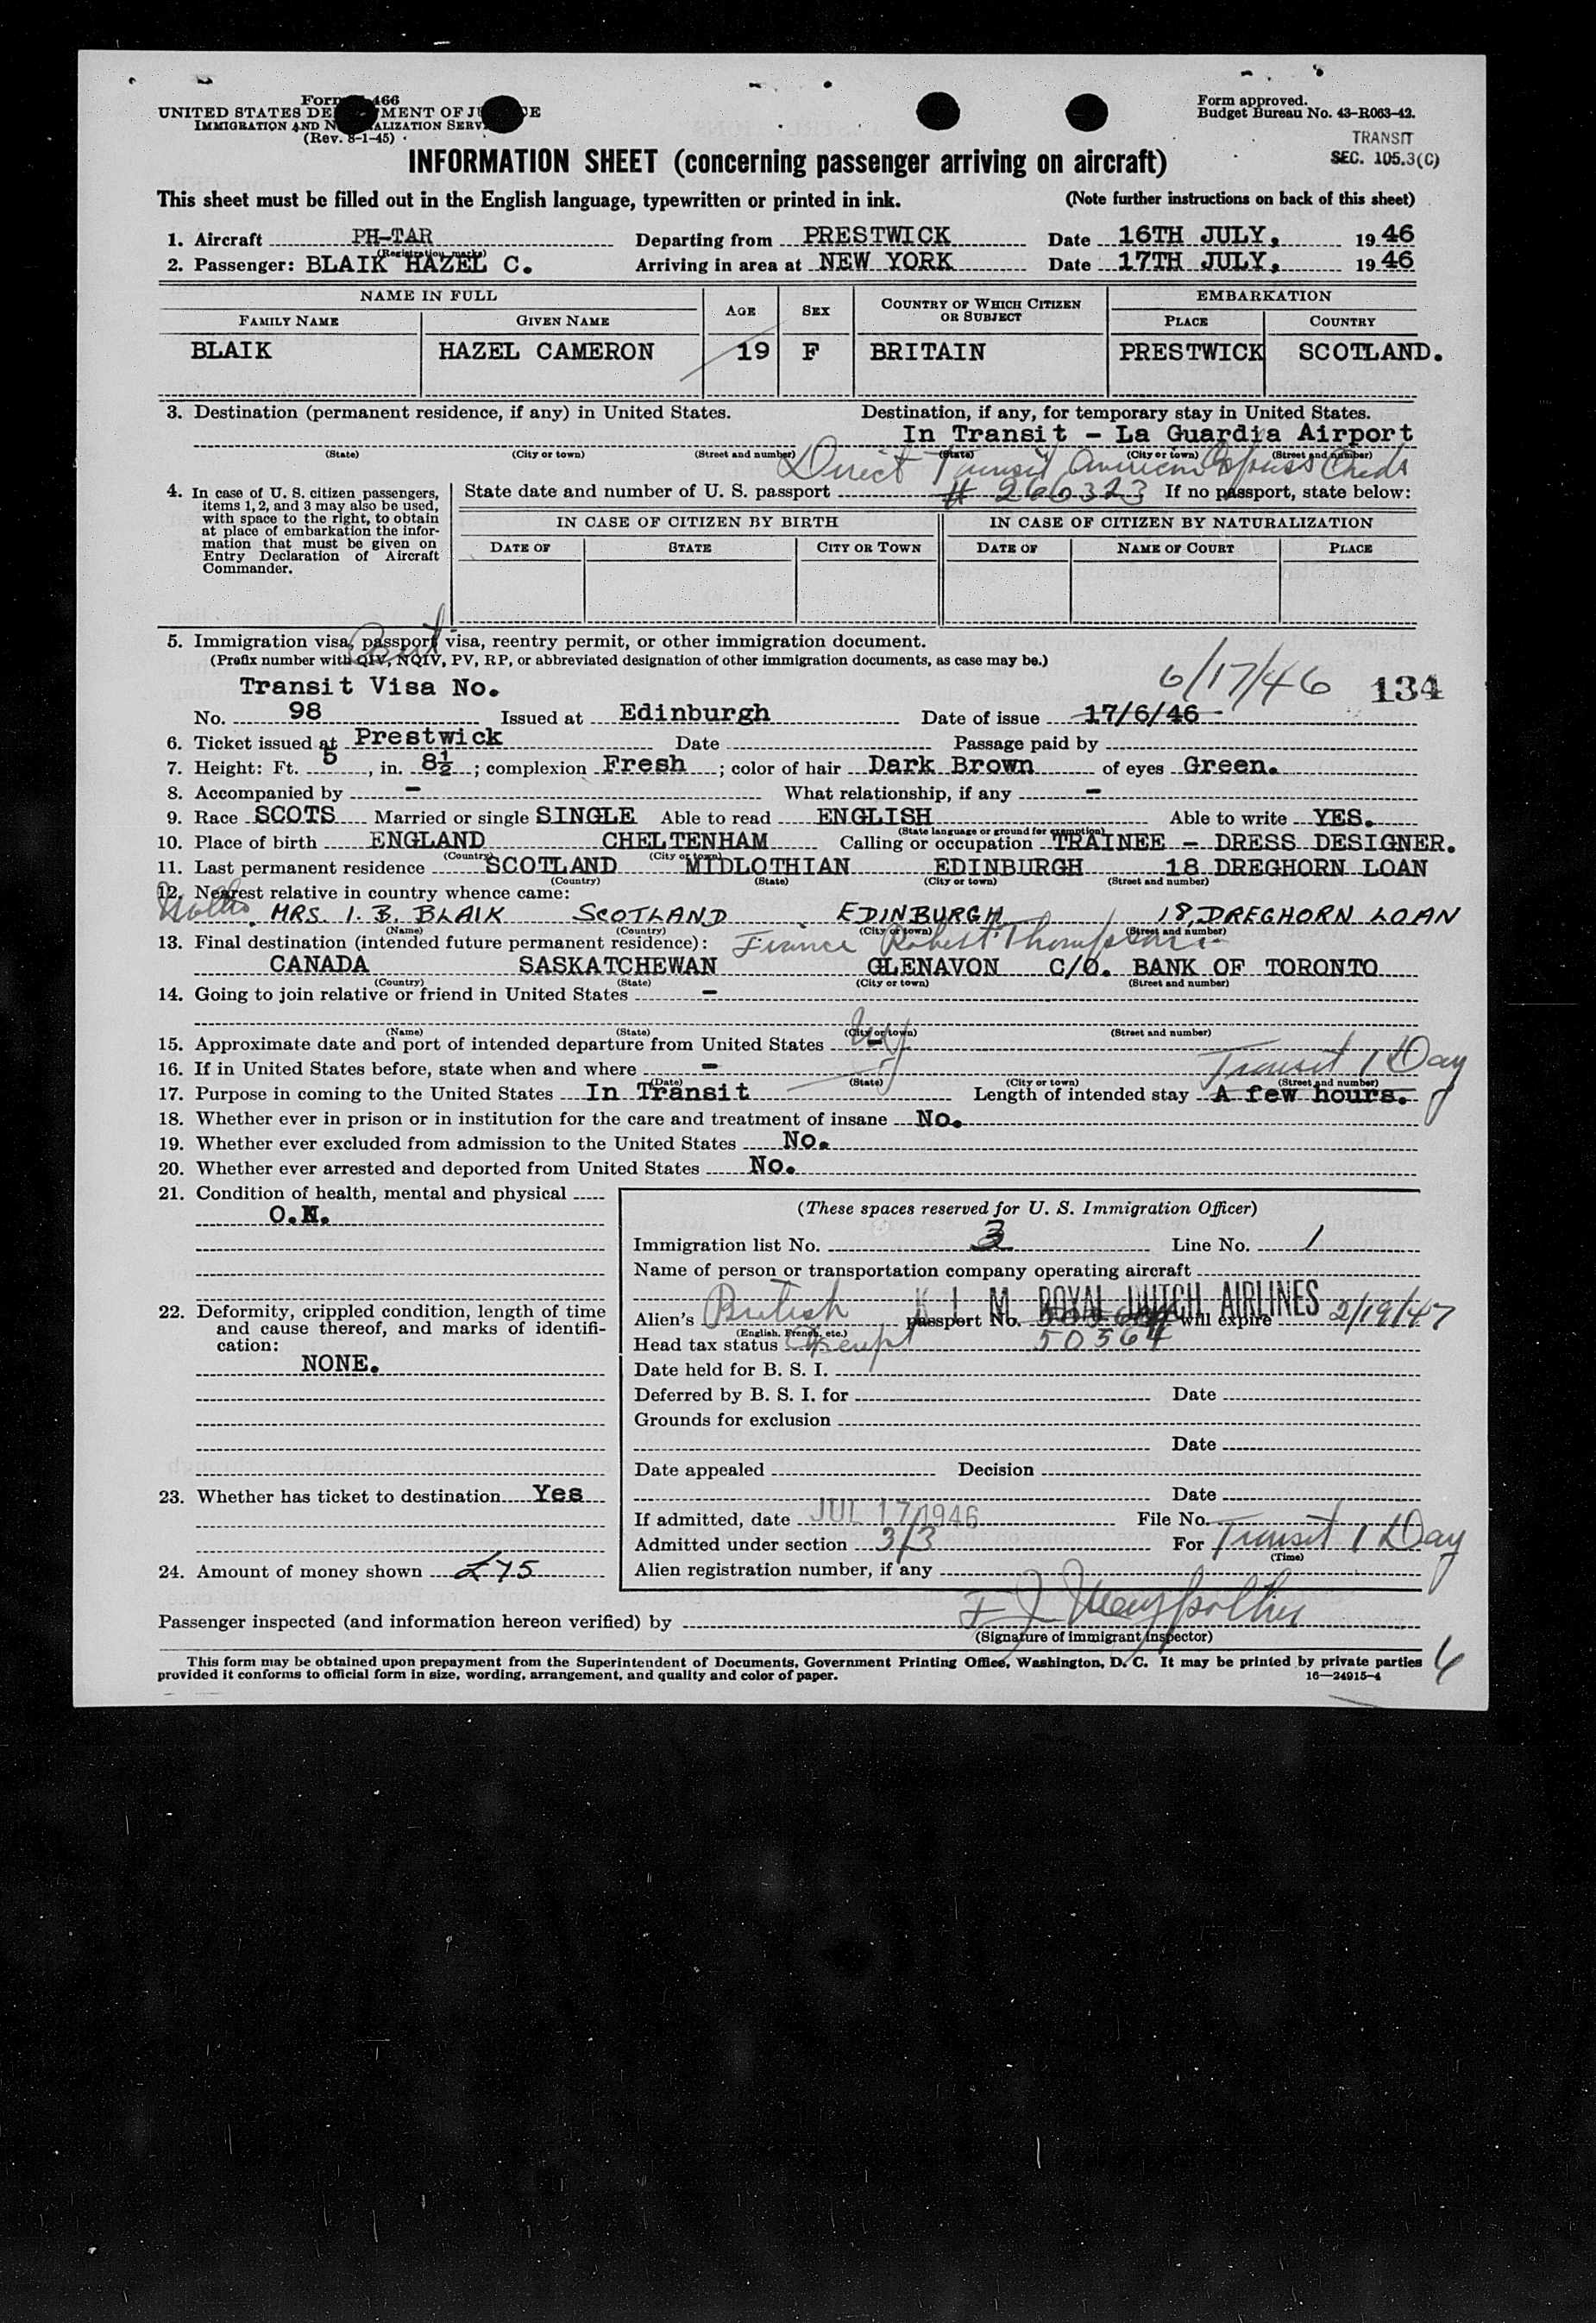 Form 466
UNITED STATES DE MENT OF JU CE
IMMIGRATION AND N ALIZATION SERV
(Rev. 8-1-45)
Form approved.
Budget Bureau No. 43-R063-42.
TRANSIT
SEC. 105.3(C)
INFORMATION SHEET (concerning passenger arriving on aircraft)
This sheet must be filled out in the English language, typewritten or printed in ink. (Note further instructions on back of this sheet)
1. Aircraft PH-TAR Departing from PRESTWICK Date 16TH JULY, 1946
(Registration marks)
2. Passenger: BLAIK HAZEL C. Arriving in area at NEW YORK Date 17TH JULY, 1946
NAME IN FULL AGE SEX COUNTRY OF WHICH CITIZEN OR SUBJECT EMBARKATION
FAMILY NAME GIVEN NAME PLACE COUNTRY
BLAIK HAZEL CAMERON 19 F BRITAIN PRESTWICK SCOTLAND.
3. Destination (permanent residence, if any) in United States. Destination, if any, for temporary stay in United States.
In Transit - La Guardia Airport
(State) (City or town) (Street and number) (State) (City or town) (Street and number)
Direct Transit American Express Checks
4. In case of U. S. citizen passengers, items 1, 2, and 3 may also be used, with space to the right, to obtain at place of embarkation the information that must be given on Entry Declaration of Aircraft Commander.
State date and number of U. S. passport # 266323 If no passport, state below:
IN CASE OF CITIZEN BY BIRTH IN CASE OF CITIZEN BY NATURALIZATION
DATE OF STATE CITY OR TOWN DATE OF NAME OF COURT PLACE
5. Immigration visa, passport visa, reentry permit, or other immigration document.
(Prefix number with QIV, NQIV, PV, RP, or abbreviated designation of other immigration documents, as case may be.)
Transit Visa No. 6/17/46 134
No. 98 Issued at Edinburgh Date of issue 17/6/46
6. Ticket issued at Prestwick Date Passage paid by
7. Height: Ft. 5, in. 8½; complexion Fresh; color of hair Dark Brown of eyes Green.
8. Accompanied by - What relationship, if any -
9. Race SCOTS Married or single SINGLE Able to read ENGLISH Able to write YES.
(State language or ground for exemption)
10. Place of birth ENGLAND CHELTENHAM Calling or occupation TRAINEE - DRESS DESIGNER.
(Country) (City or town)
11. Last permanent residence SCOTLAND MIDLOTHIAN EDINBURGH 18 DREGHORN LOAN
(Country) (State) (City or town) (Street and number)
12. Nearest relative in country whence came:
MRS. I. B. BLAIK SCOTLAND EDINBURGH 18, DREGHORN LOAN
(Name) (Country) (City or town) (Street and number)
13. Final destination (intended future permanent residence): Fiance Robert Thompson
CANADA SASKATCHEWAN GLENAVON C/O. BANK OF TORONTO
(Country) (State) (City or town) (Street and number)
14. Going to join relative or friend in United States -
(Name) (State) (City or town) (Street and number)
15. Approximate date and port of intended departure from United States -
16. If in United States before, state when and where - Transit 1 Day
(Date) (State) (City or town) (Street and number)
17. Purpose in coming to the United States In Transit Length of intended stay A few hours.
18. Whether ever in prison or in institution for the care and treatment of insane No.
19. Whether ever excluded from admission to the United States No.
20. Whether ever arrested and deported from United States No.
21. Condition of health, mental and physical
22. Deformity, crippled condition, length of time and cause thereof, and marks of identification:
NONE.
23. Whether has ticket to destination Yes
24. Amount of money shown £75
(These spaces reserved for U. S. Immigration Officer)
Immigration list No. 3 Line No. 1
Name of person or transportation company operating aircraft
K L M ROYAL DUTCH AIRLINES
Alien's British passport No. will expire 2/19/47
(English, French, etc.)
Head tax status Exempt 50564
Date held for B. S. I.
Deferred by B. S. I. for Date
Grounds for exclusion
Date
Date appealed Decision
Date
If admitted, date JUL 17 1946 File No.
Admitted under section 3/3 For Transit 1 Day
(Time)
Alien registration number, if any
Passenger inspected (and information hereon verified) by
(Signature of immigrant inspector)
This form may be obtained upon prepayment from the Superintendent of Documents, Government Printing Office, Washington, D. C. It may be printed by private parties
provided it conforms to official form in size, wording, arrangement, and quality and color of paper. 16—24915-4